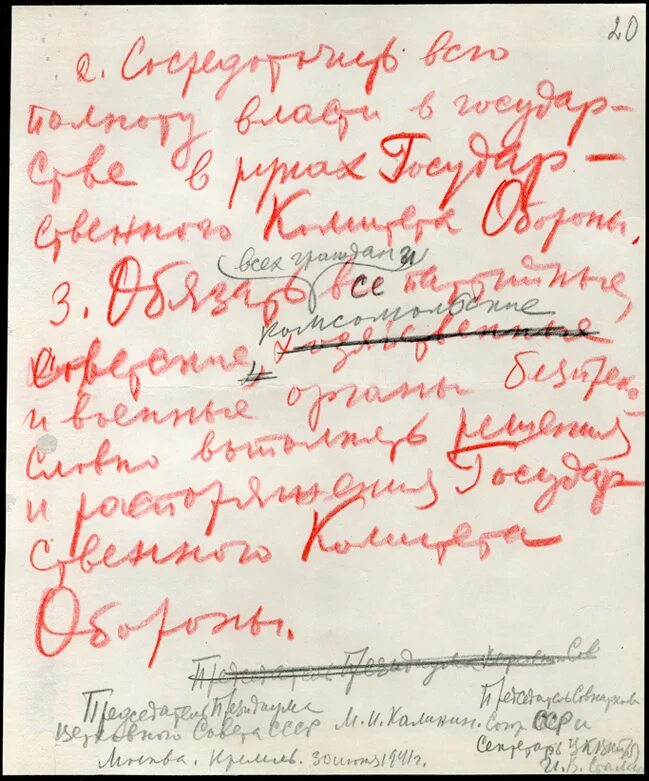 20
2. Сосредоточить всю
полноту власти в государ-
стве в руках Государ-
ственного Комитета Обороны.
всех граждан и
3. Обязать все партийные,
комсомольские
советские, хозяйственные
и военные органы беспреко-
словно выполнять решения
и распоряжения Государ
ственного Комитета
Обороны.
Председатель Президиума Верховн Сов
Председатель Президиума
Верховного Совета СССР М.И. Калинин.
Председатель Совнаркома
СССР и
Секретарь ЦК ВКП(б)
И.В. Сталин
Москва. Кремль. 30 июня 1941 г.